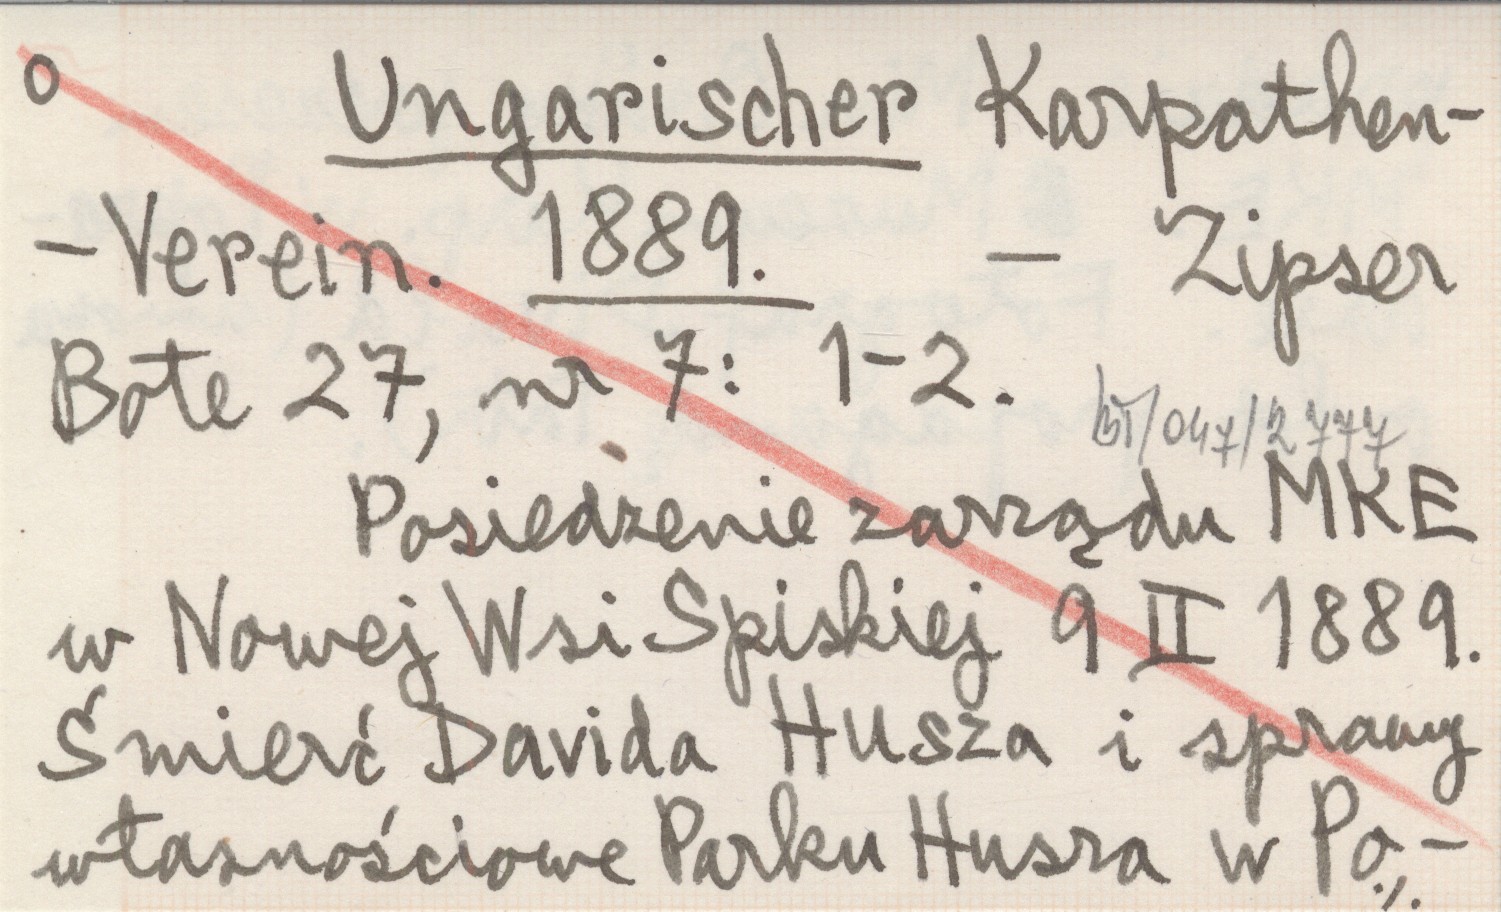 o Ungarischer Karpathen-
-Verein. 1889. — Zipser
Bote 27, nr 7: 1-2.
/047/2777
Posiedzenie zarządu MKE
w Nowej Wsi Spiskiej 9 II 1889.
Śmierć Davida Husza i sprawy
własnościowe Parku Husza w Po-